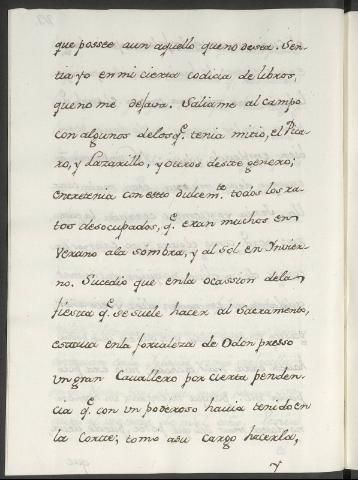 que possee aun aquello que no desea. Sen-
tia yo en mi cierta codicia de libros,
que no me dejava. Saliame al campo
con algunos de los q.e tenia mi tio, el Pica-
ro, y Lazarillo, y otros deste genero;
entretenia con esto dulcem.te todos los ra-
tos desocupados, q.e eran muchos en
Verano a la sombra, y al sol en Invier-
no. Sucedio que en la ocassion de la
fiesta q.e se suele hacer al Sacramento,
estava en la fortaleza de Odon presso
un gran Cavallero por cierta penden-
cia q.e con un poderoso havia tenido en
la Corte; tomo a su cargo hacerla,
y